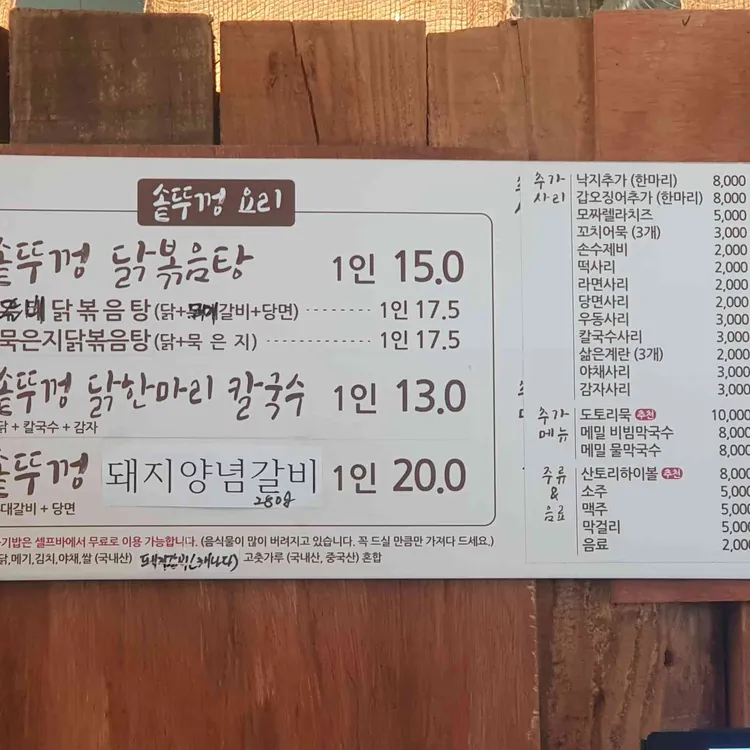 솥뚜껑 요리
솥뚜껑 닭볶음탕 1인 15.0
닭볶음탕(닭+갈비+당면) 1인 17.5
묵은지닭볶음탕(닭+묵은지) 1인 17.5
솥뚜껑 닭한마리 칼국수 1인 13.0
닭 + 칼국수 + 감자
솥뚜껑 돼지양념갈비 1인 20.0
280g
대갈비 + 당면
공기밥은 셀프바에서 무료로 이용 가능합니다. (음식물이 많이 버려지고 있습니다. 꼭 드실 만큼만 가져다 드세요.)
닭,메기,김치,야채,쌀 (국내산) 돼지갈비(캐나다) 고춧가루 (국내산, 중국산) 혼합
추가 사리
낙지추가 (한마리) 8,000
갑오징어추가 (한마리) 8,000
모짜렐라치즈 5,000
꼬치어묵 (3개) 3,000
손수제비 2,000
떡사리 2,000
라면사리 2,000
당면사리 2,000
우동사리 3,000
칼국수사리 3,000
삶은계란 (3개) 2,000
야채사리 3,000
감자사리 3,000
추가 메뉴
도토리묵 추천 10,000
메밀 비빔막국수 8,000
메밀 물막국수 8,000
주류 & 음료
산토리하이볼 추천 8,000
소주 5,000
맥주 5,000
막걸리 5,000
음료 2,000